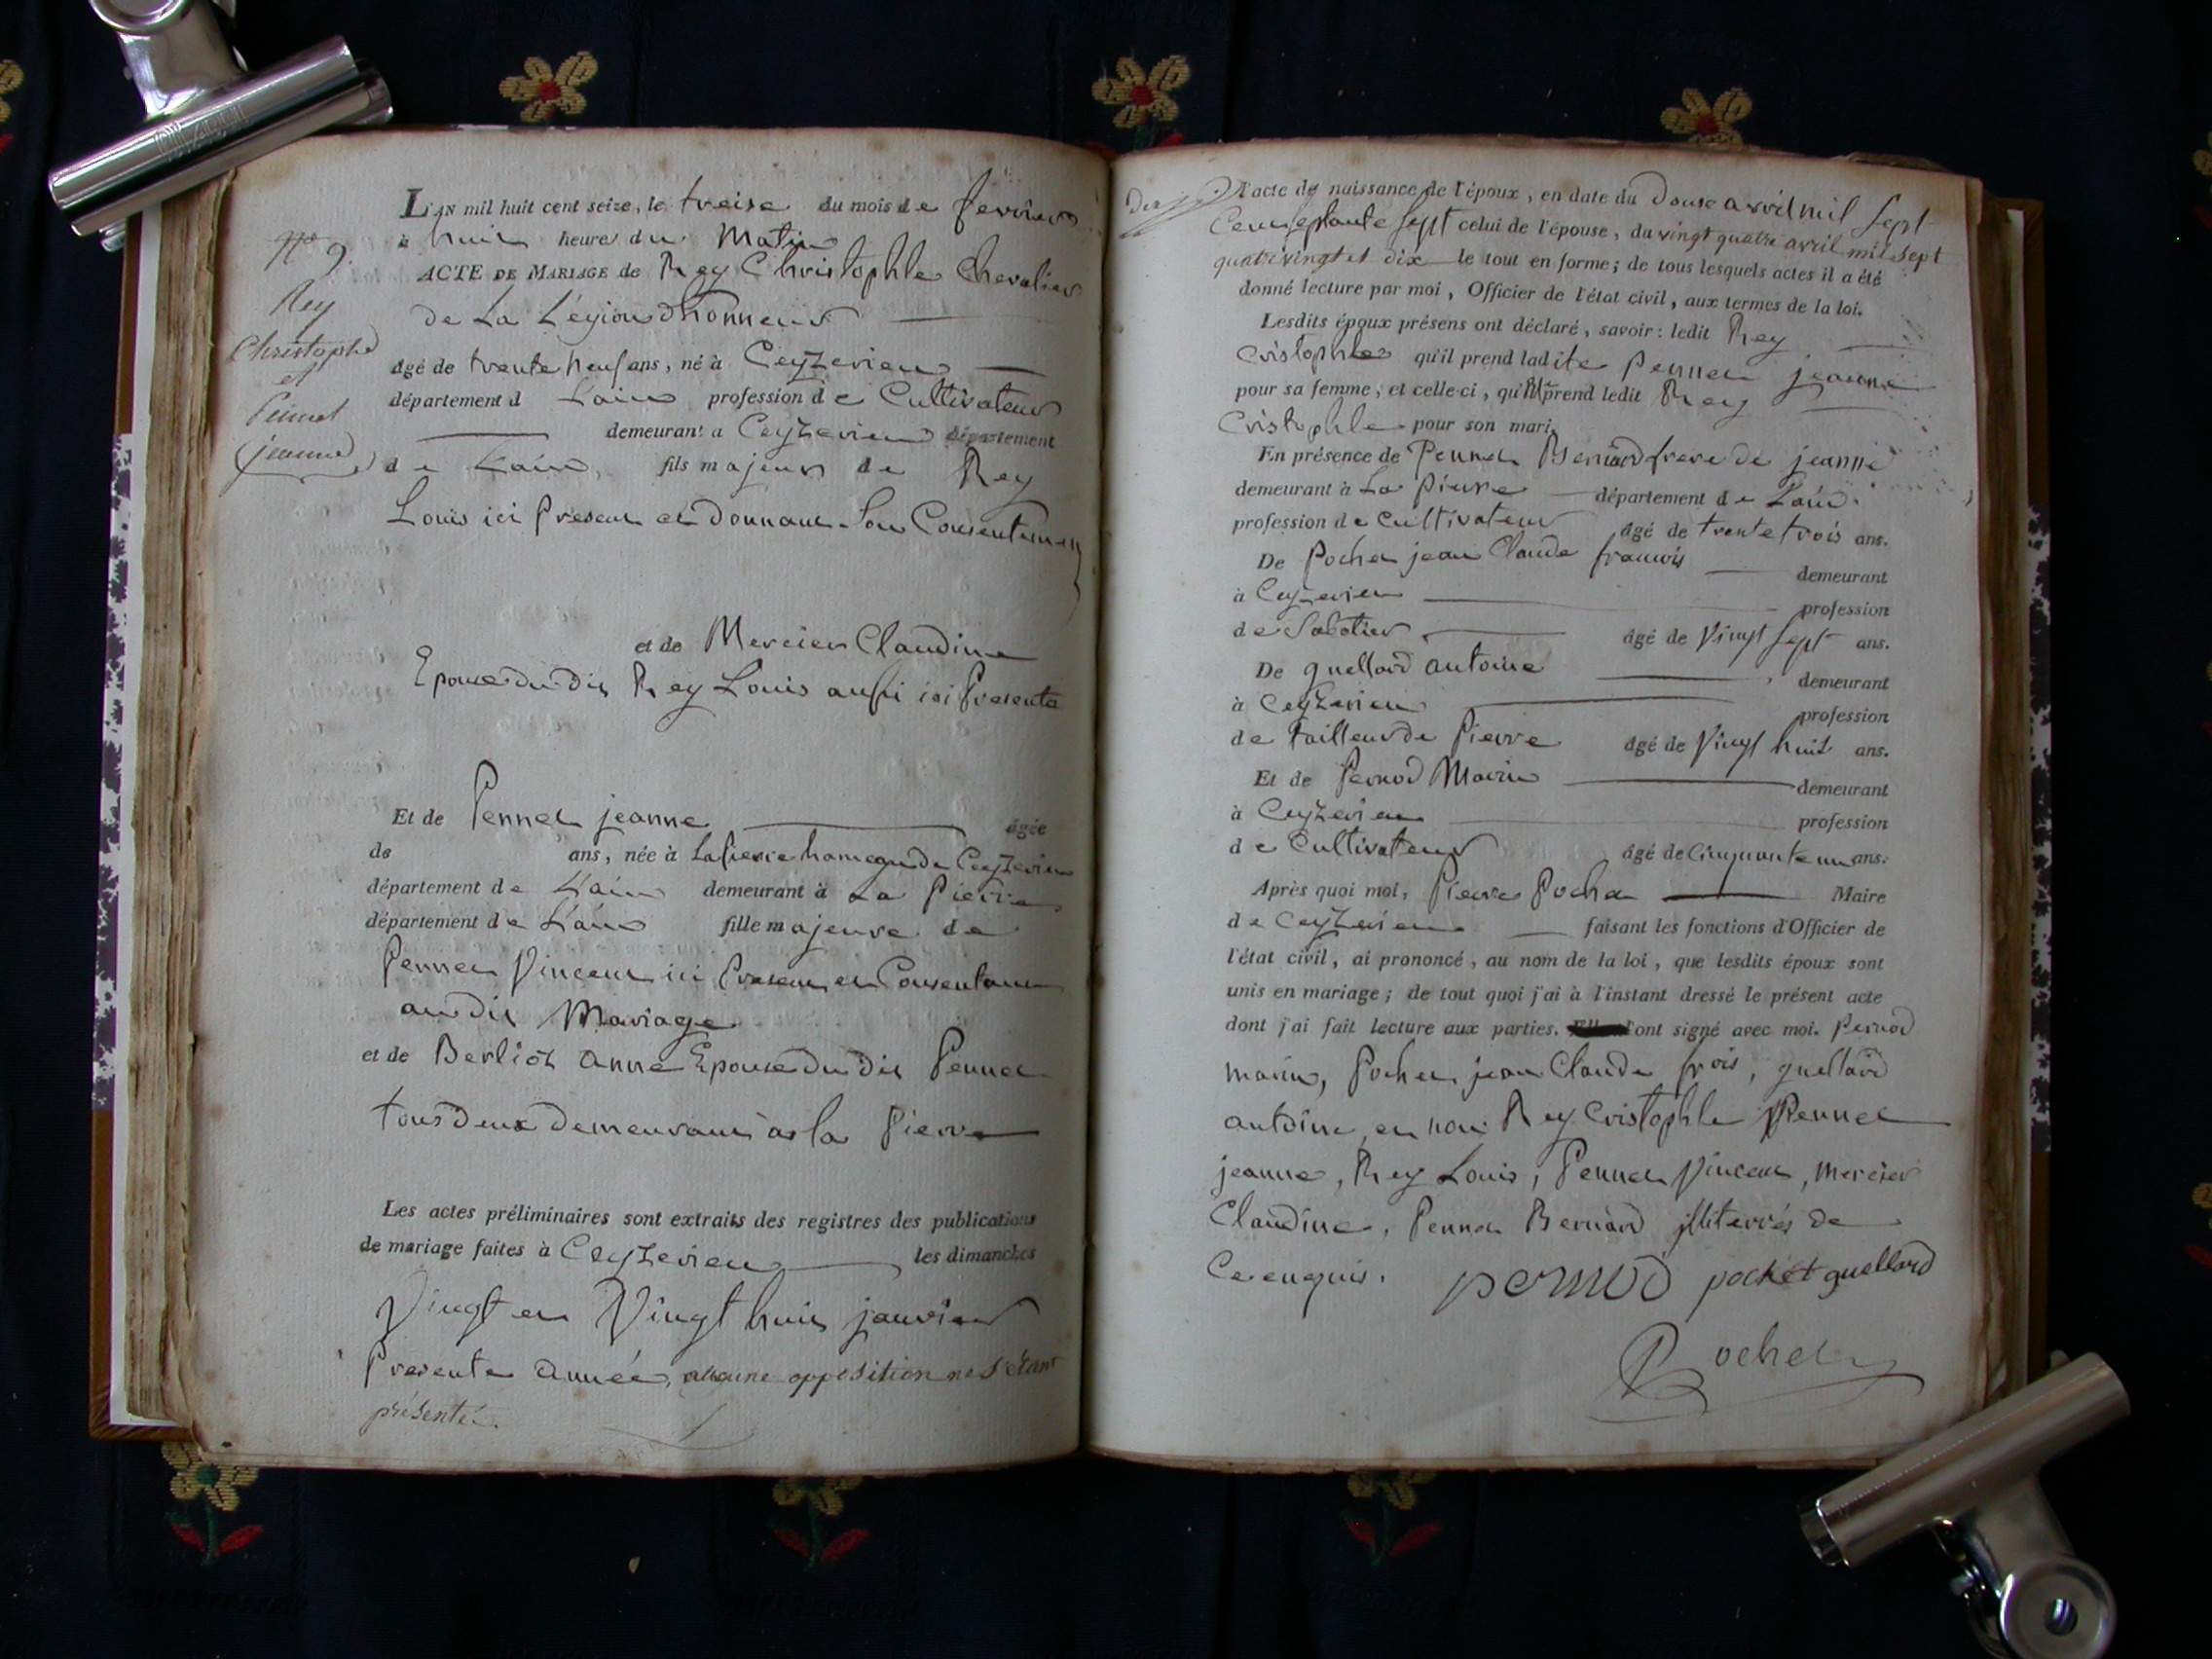 L'AN mil huit cent seize, le treise du mois de fevrier
à huit heures du Matin
N.o 9.
ACTE DE MARIAGE de Rey Christophle Chevalier
de La Légion dhonneur
Rey
Christophe
et
Pennet
jeanne
âgé de trente neuf ans, né à Ceyzerieu
département d Lain profession de Cultivateur
demeurant a Ceyzerieu département
de Lain, fils majeur de Rey
Louis ici Present et donnant Son Consentement
et de Mercier Claudine
Epouse du dit Rey Louis aussi ici Presente
Et de Pennet jeanne âgée
de ans, née à Lapierre hameau de Ceyzerieu
département de L'ain demeurant à La Pierre
département de L'ain fille majeure de
Pennet Vincent ici Present et Consentant
au dit Mariage
et de Berliot anne Epouse du dit Pennet
tous deux demeurant à la Pierre
Les actes préliminaires sont extraits des registres des publications
de mariage faites à Ceyzerieu les dimanches
Vingt et Vingt huit janvier
Presente année, aucune opposition ne s'étant
présentée.
L'acte de naissance de l'époux, en date du Douse avril mil Sept
Cent septante sept celui de l'épouse, du vingt quatre avril mil sept
quatrevingt et dix le tout en forme; de tous lesquels actes il a été
donné lecture par moi, Officier de l'état civil, aux termes de la loi.
Lesdits époux présens ont déclaré, savoir: ledit Rey
Cristophle qu'il prend ladite Pennet jeanne
pour sa femme; et celle-ci, qu'elle prend ledit Rey
Cristophle pour son mari.
En présence de Pennet Bernard frere de jeanne
demeurant à La Pierre département de Lain
profession de Cultivateur âgé de trente trois ans.
De Pochet jean Claude francois demeurant
à Ceyzerieu profession
de Sabotier âgé de Vingt Sept ans.
De guellard antoine demeurant
à Ceyzerieu profession
de tailleur de Pierre âgé de Vingt huit ans.
Et de Pernod Marin demeurant
à Ceyzerieu profession
de Cultivateur âgé de Cinquante un ans.
Après quoi moi, Pierre Pochet Maire
de Ceyzerieu faisant les fonctions d'Officier de
l'état civil, ai prononcé, au nom de la loi, que lesdits époux sont
unis en mariage; de tout quoi j'ai à l'instant dressé le présent acte
dont j'ai fait lecture aux parties. ont signé avec moi. Pernod
marin, Pochet jean Claude frois, guellard
antoine, et non Rey Cristophle Pennet
jeanne, Rey Louis, Pennet Vincent, Mercier
Claudine, Pennet Bernard illiterrés de
Ce enquis. pernod pochet guellard
Pochet